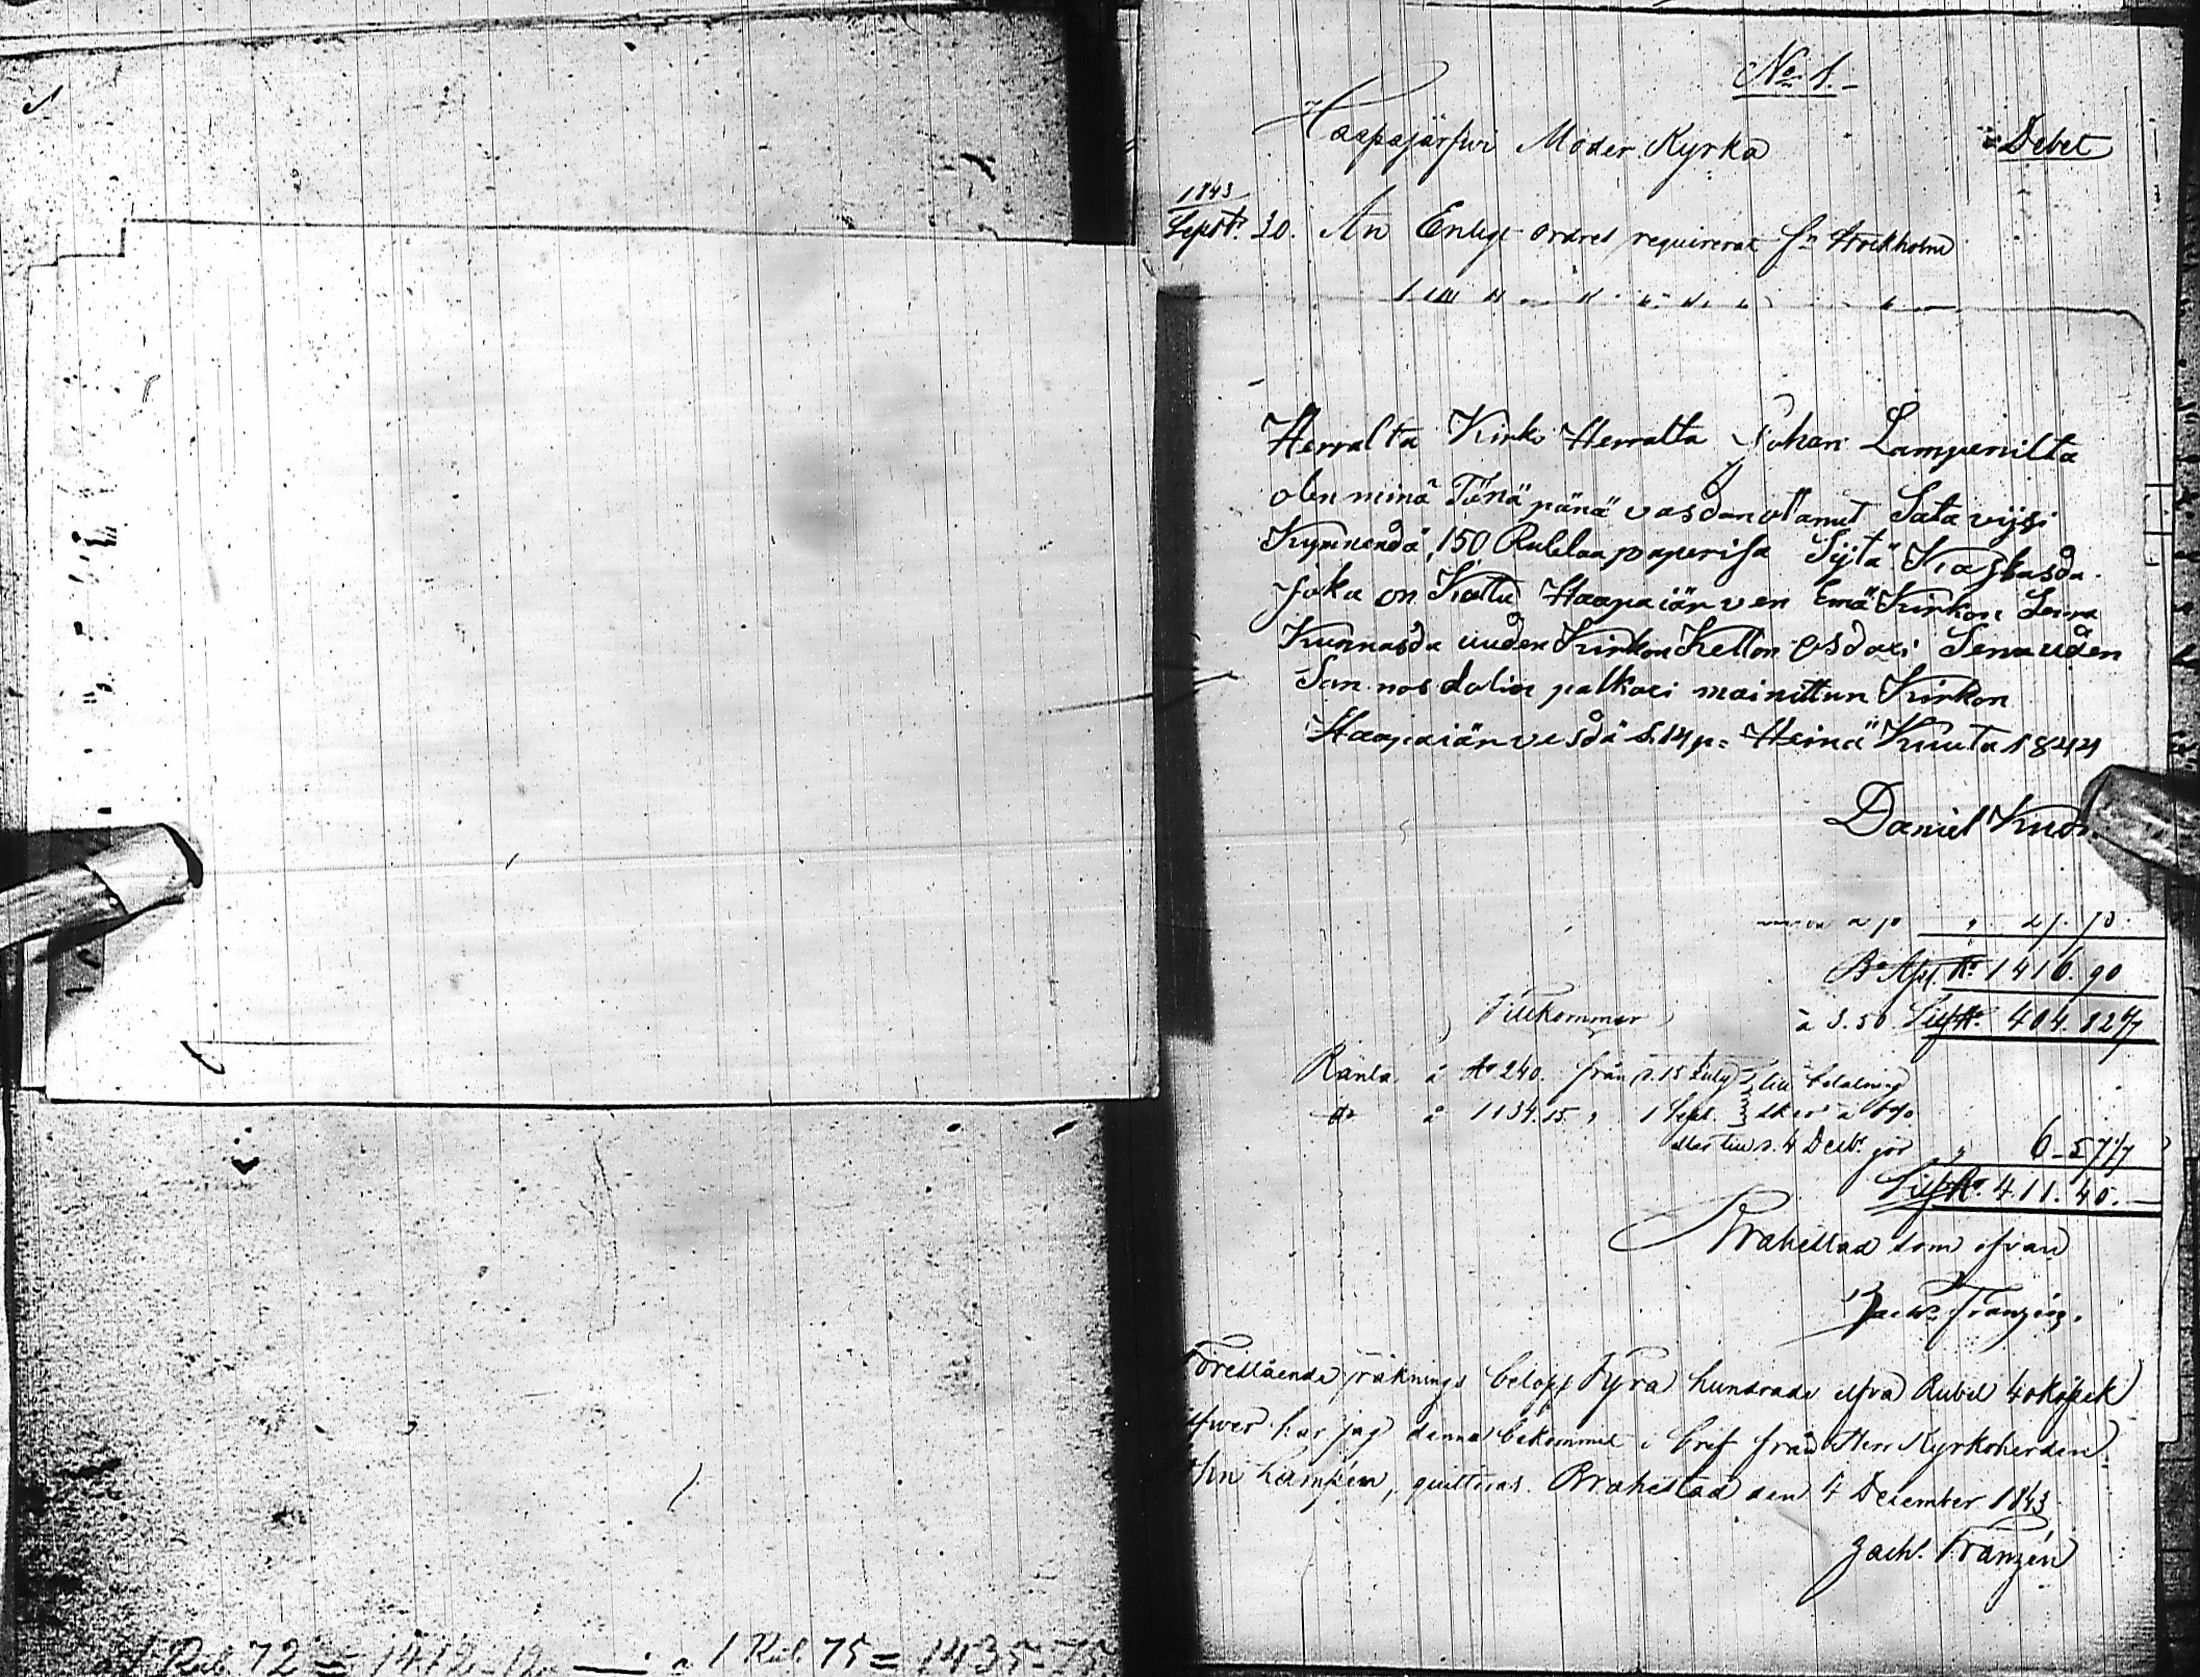 No 1.
Haapajärfwi Moder Kyrka Debet
1843
Septr. 30. An Enligt ordres requirerat fn Stockholm
Herralta Kirko Herralta Johan Lampenilta
olen minä Tänä pänä vasdanottanut Sata vijsi
Kymmendä, 150 Rublaa paperisa Sijtä Kasbasda
joka on Kottu Haapaiärven Emä Kirkon Seura
Kunnasda uuden Kirkon Kellon Osdoxi Sen uuden
palkaxi mainittun Kirkon
Haapaiärvesdä d. 14 p. Heinä Kuuta 1844
Daniel
Bo Ass. Ro 1416. 90
Tillkommer à 3.50 Silf Ro. 404. 82 6/7
Ränta å Ro 240. från d. 15 July till betalning
do å 1134.15. " 1 Sept. sker à 6%
eller till d. 4 Decbr gör " 6-57 1/7
Silf Ro. 411. 40.—
Brahestad som ofvan
Zachs Franzén.
Förestående räknings belopp Fyra hundrade elfva Rubel 40 kopek
Silfwer har jag denna bekommit i bref från Herr Kyrkoherden
Lampén, quitteras. Brahestad den 4 December 1843
Zachs. Franzén
1 Rub. 72 = 1412-12 — à 1 Rub. 75 = 1435-75